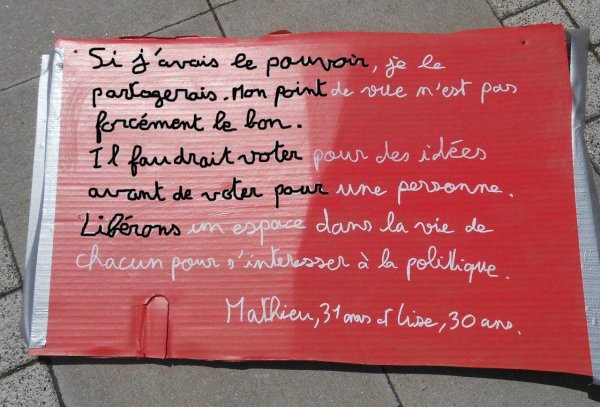 Si j'avais le pouvoir, je le
partagerais. Mon point de vue n'est pas
forcément le bon.
Il faudrait voter pour des idées
avant de voter pour une personne.
Libérons un espace dans la vie de
chacun pour s'intéresser à la politique.
Mathieu, 31 ans et Lise, 30 ans.